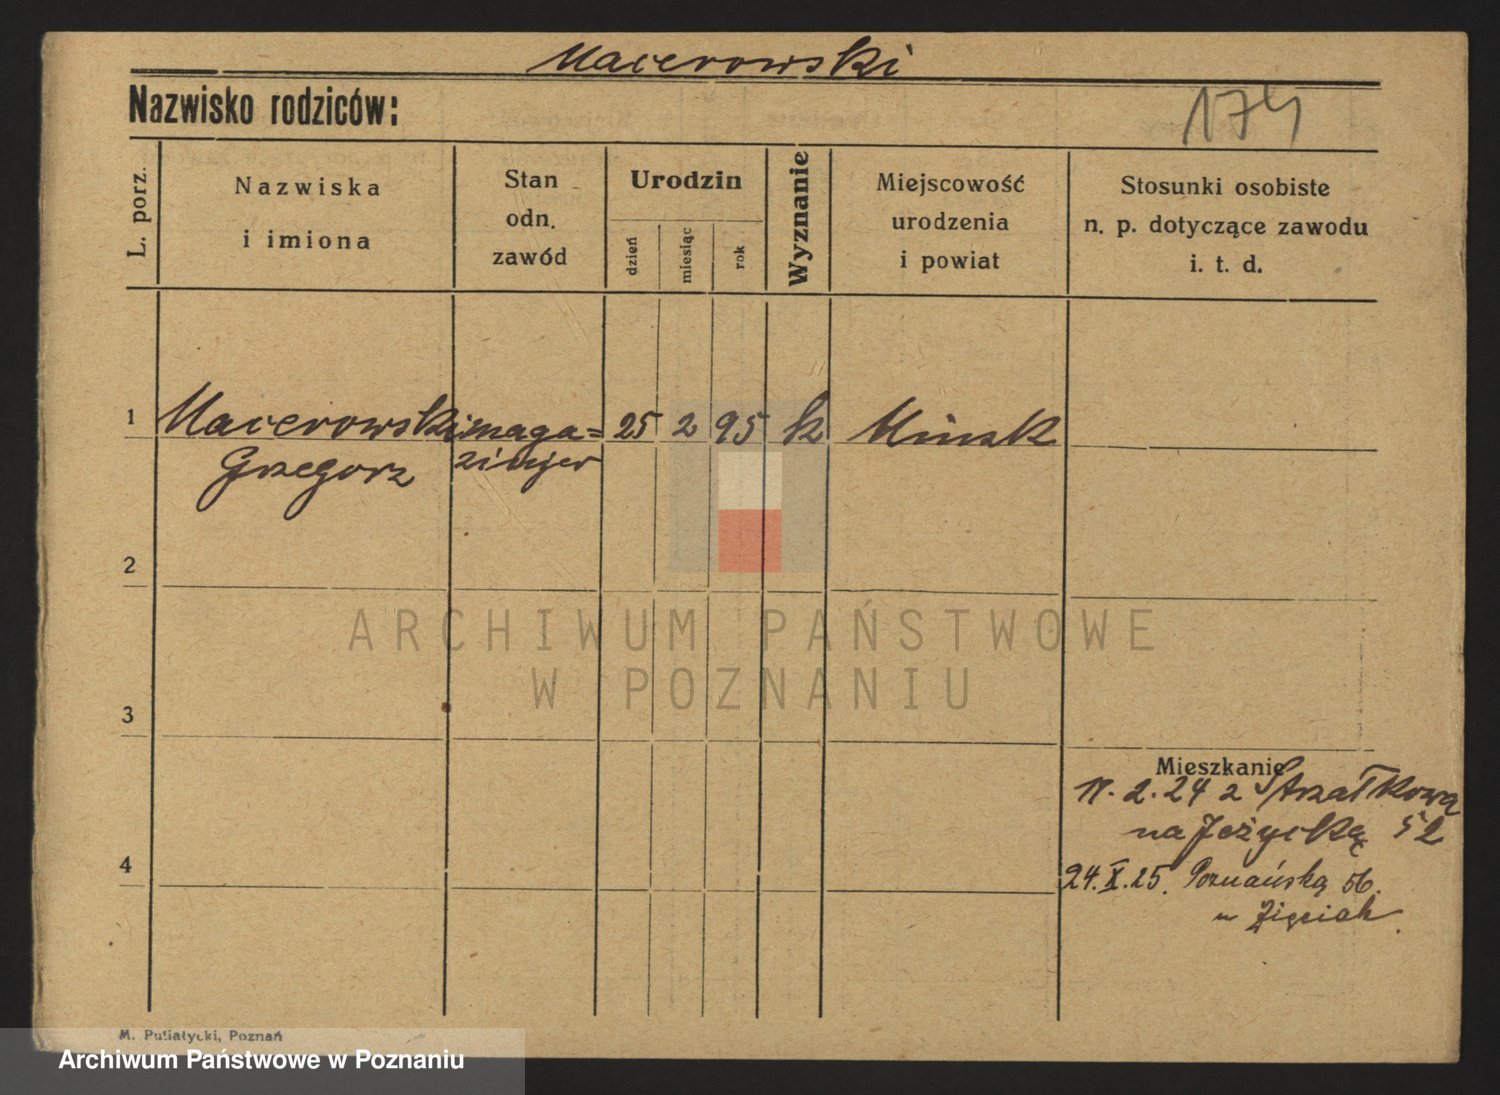 Macerowski
Nazwisko rodziców:
174
L. porz.
Nazwiska
i imiona
Stan
odn.
zawód
Urodzin
dzień
miesiąc
rok
Wyznanie
Miejscowość
urodzenia
i powiat
Stosunki osobiste
n. p. dotyczące zawodu
i. t. d.
1 Macerowski maga= 25 2 95 k Minsk
Grzegorz zinjer
2
ARCHIWUM PAŃSTWOWE
W POZNANIU
3
Mieszkanie
11.2.24 z Strzałkowa
na Jeżycką 52
4
24.X.25. Poznańską 56.
u Zięciak.
M. Putiatycki, Poznań
Archiwum Państwowe w Poznaniu